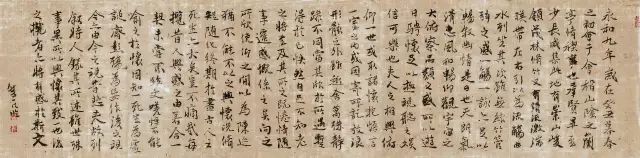 永和九年歲在癸丑暮春
之初會于會稽山陰之蘭
亭脩禊事也群賢畢至
少長咸集此地有崇山峻
領茂林脩竹又有清流激湍
暎帶左右引以為流觴曲
水列坐其次雖無絲竹管
弦之盛一觴一詠亦足以
暢敘幽情是日也天朗氣
清惠風和暢仰觀宇宙之
大俯察品類之盛所以遊
目騁懷足以極視聽之娛
信可樂也夫人之相與俯
仰一世或取諸懷抱悟言
一室之內或因寄所託放浪
形骸之外雖趣舍萬殊靜
躁不同當其欣於所遇暫
得於己快然自足不知老
之將至及其所之既惓情隨
事遷感慨係之矣向之
所欣俛仰之間以為陳迹
猶不能不以之興懷況脩
短隨化終期於盡古人云
死生亦大矣豈不痛哉每
攬昔人興感之由若合一
契未嘗不臨文嗟悼不能
喻之於懷固知一死生為虛
誕齊彭殤為妄作後之視
今亦由今之視昔悲夫故列
敘時人錄其所述雖世殊
事異所以興懷其致一也後
之攬者亦將有感於斯文